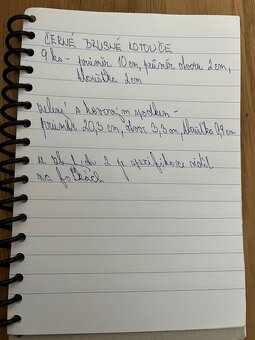 ČERNÉ BRUSNÉ KOTOUČE
9 ks - průměr 10 cm, průměr otvoru 2 cm,
tloušťka 2 cm
zelený s kovovým spodkem -
průměr 20,3 cm, otvor 3,3 cm, tloušťka 0,9 cm
u zb
je specifikace vidět
na fotkách